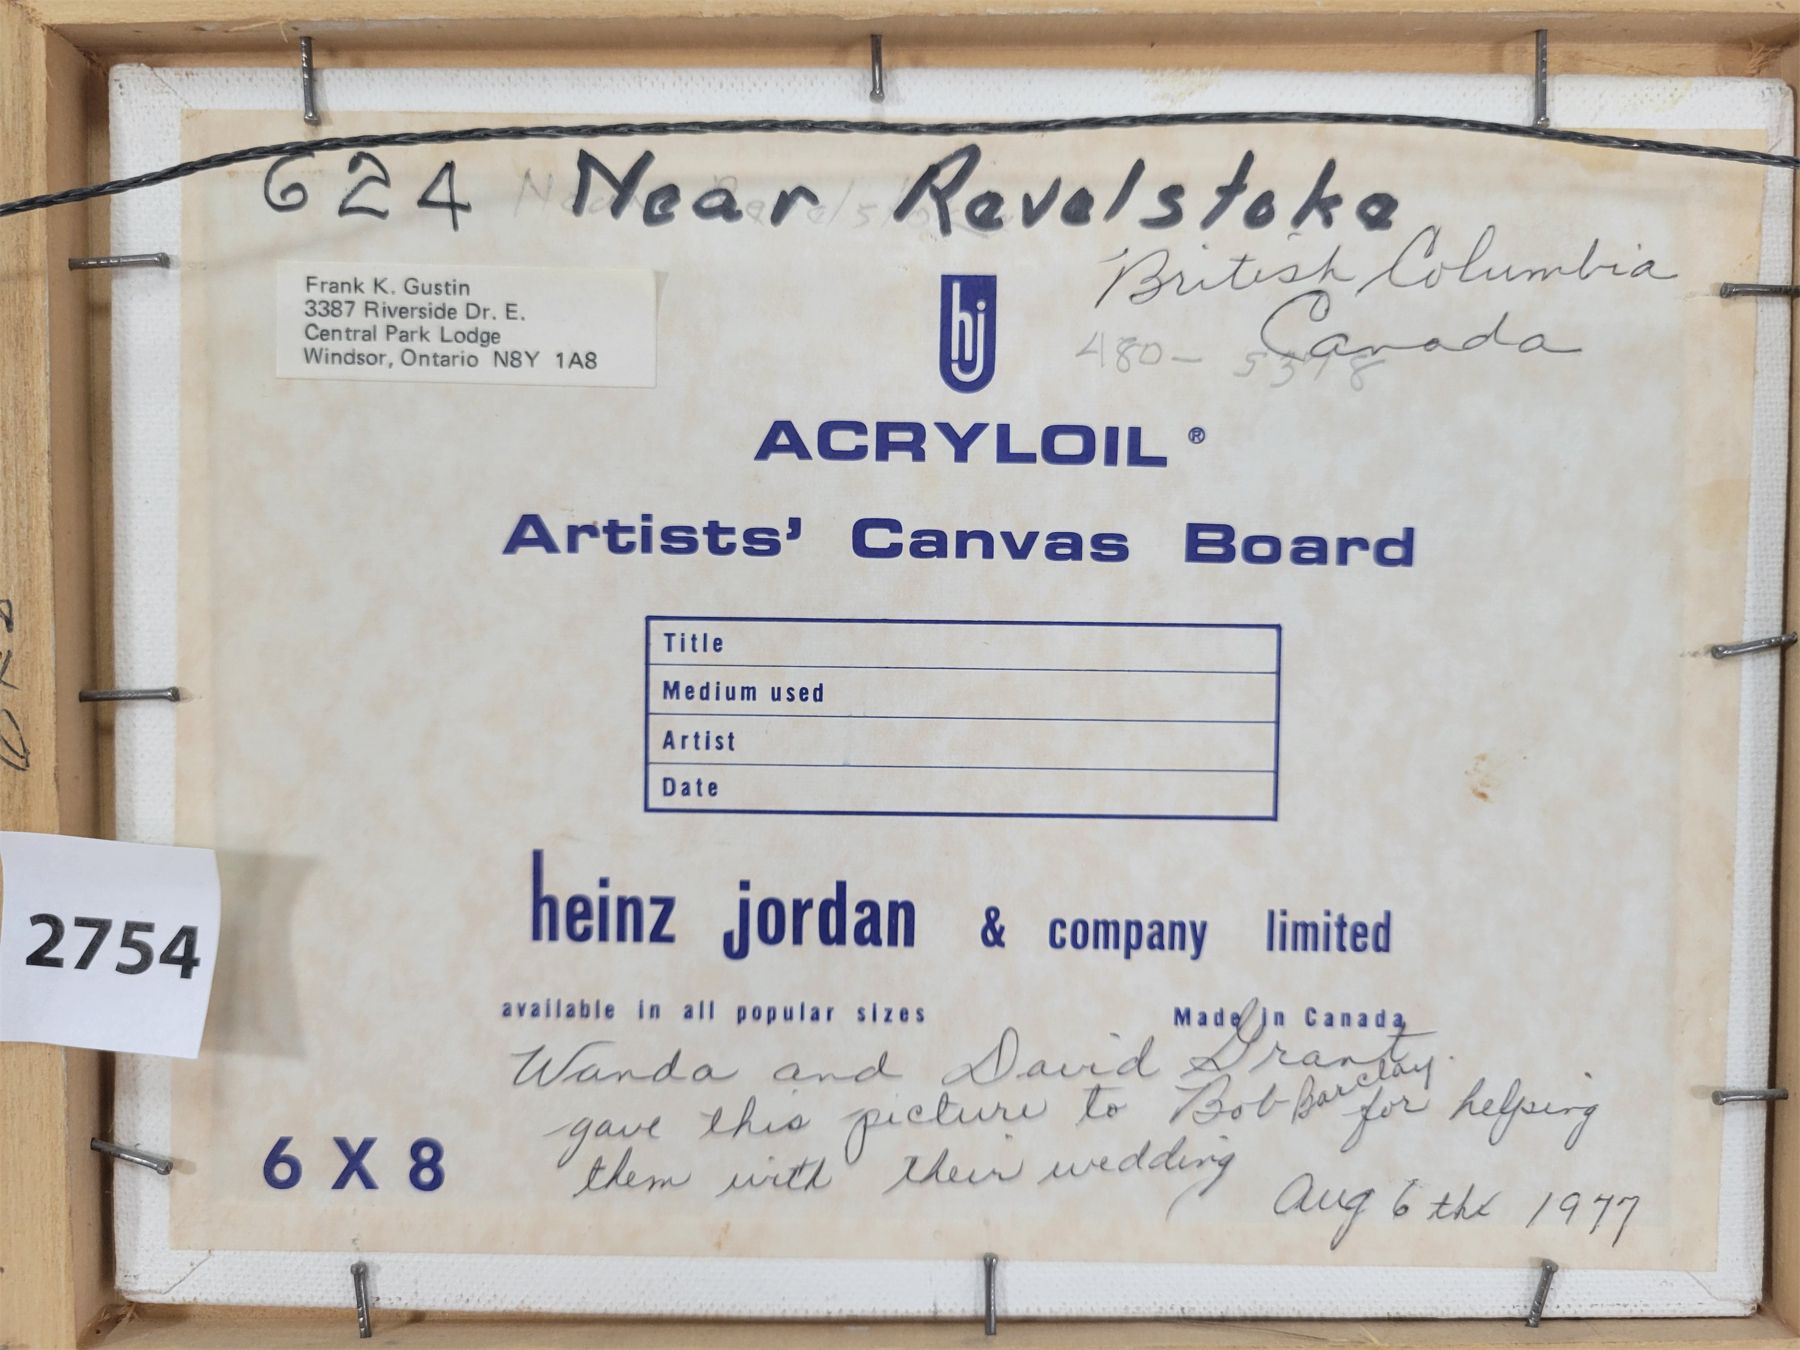 624 Near Revelstoke
British Columbia
Canada
480-
Frank K. Gustin
3387 Riverside Dr. E.
Central Park Lodge
Windsor, Ontario N8Y 1A8
hj
ACRYLOIL ®
Artists' Canvas Board
Title
Medium used
Artist
Date
2754
heinz jordan & company limited
available in all popular sizes
Made in Canada
Wanda and David Grant
gave this picture to Bob Barclay for helping
them with their wedding
Aug 6 the 1977
6 X 8